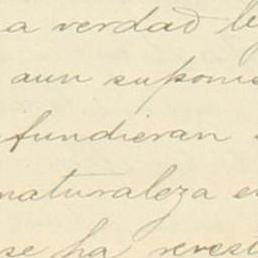 a verdad
aun supon
fundieran
naturaleza e
se ha revest